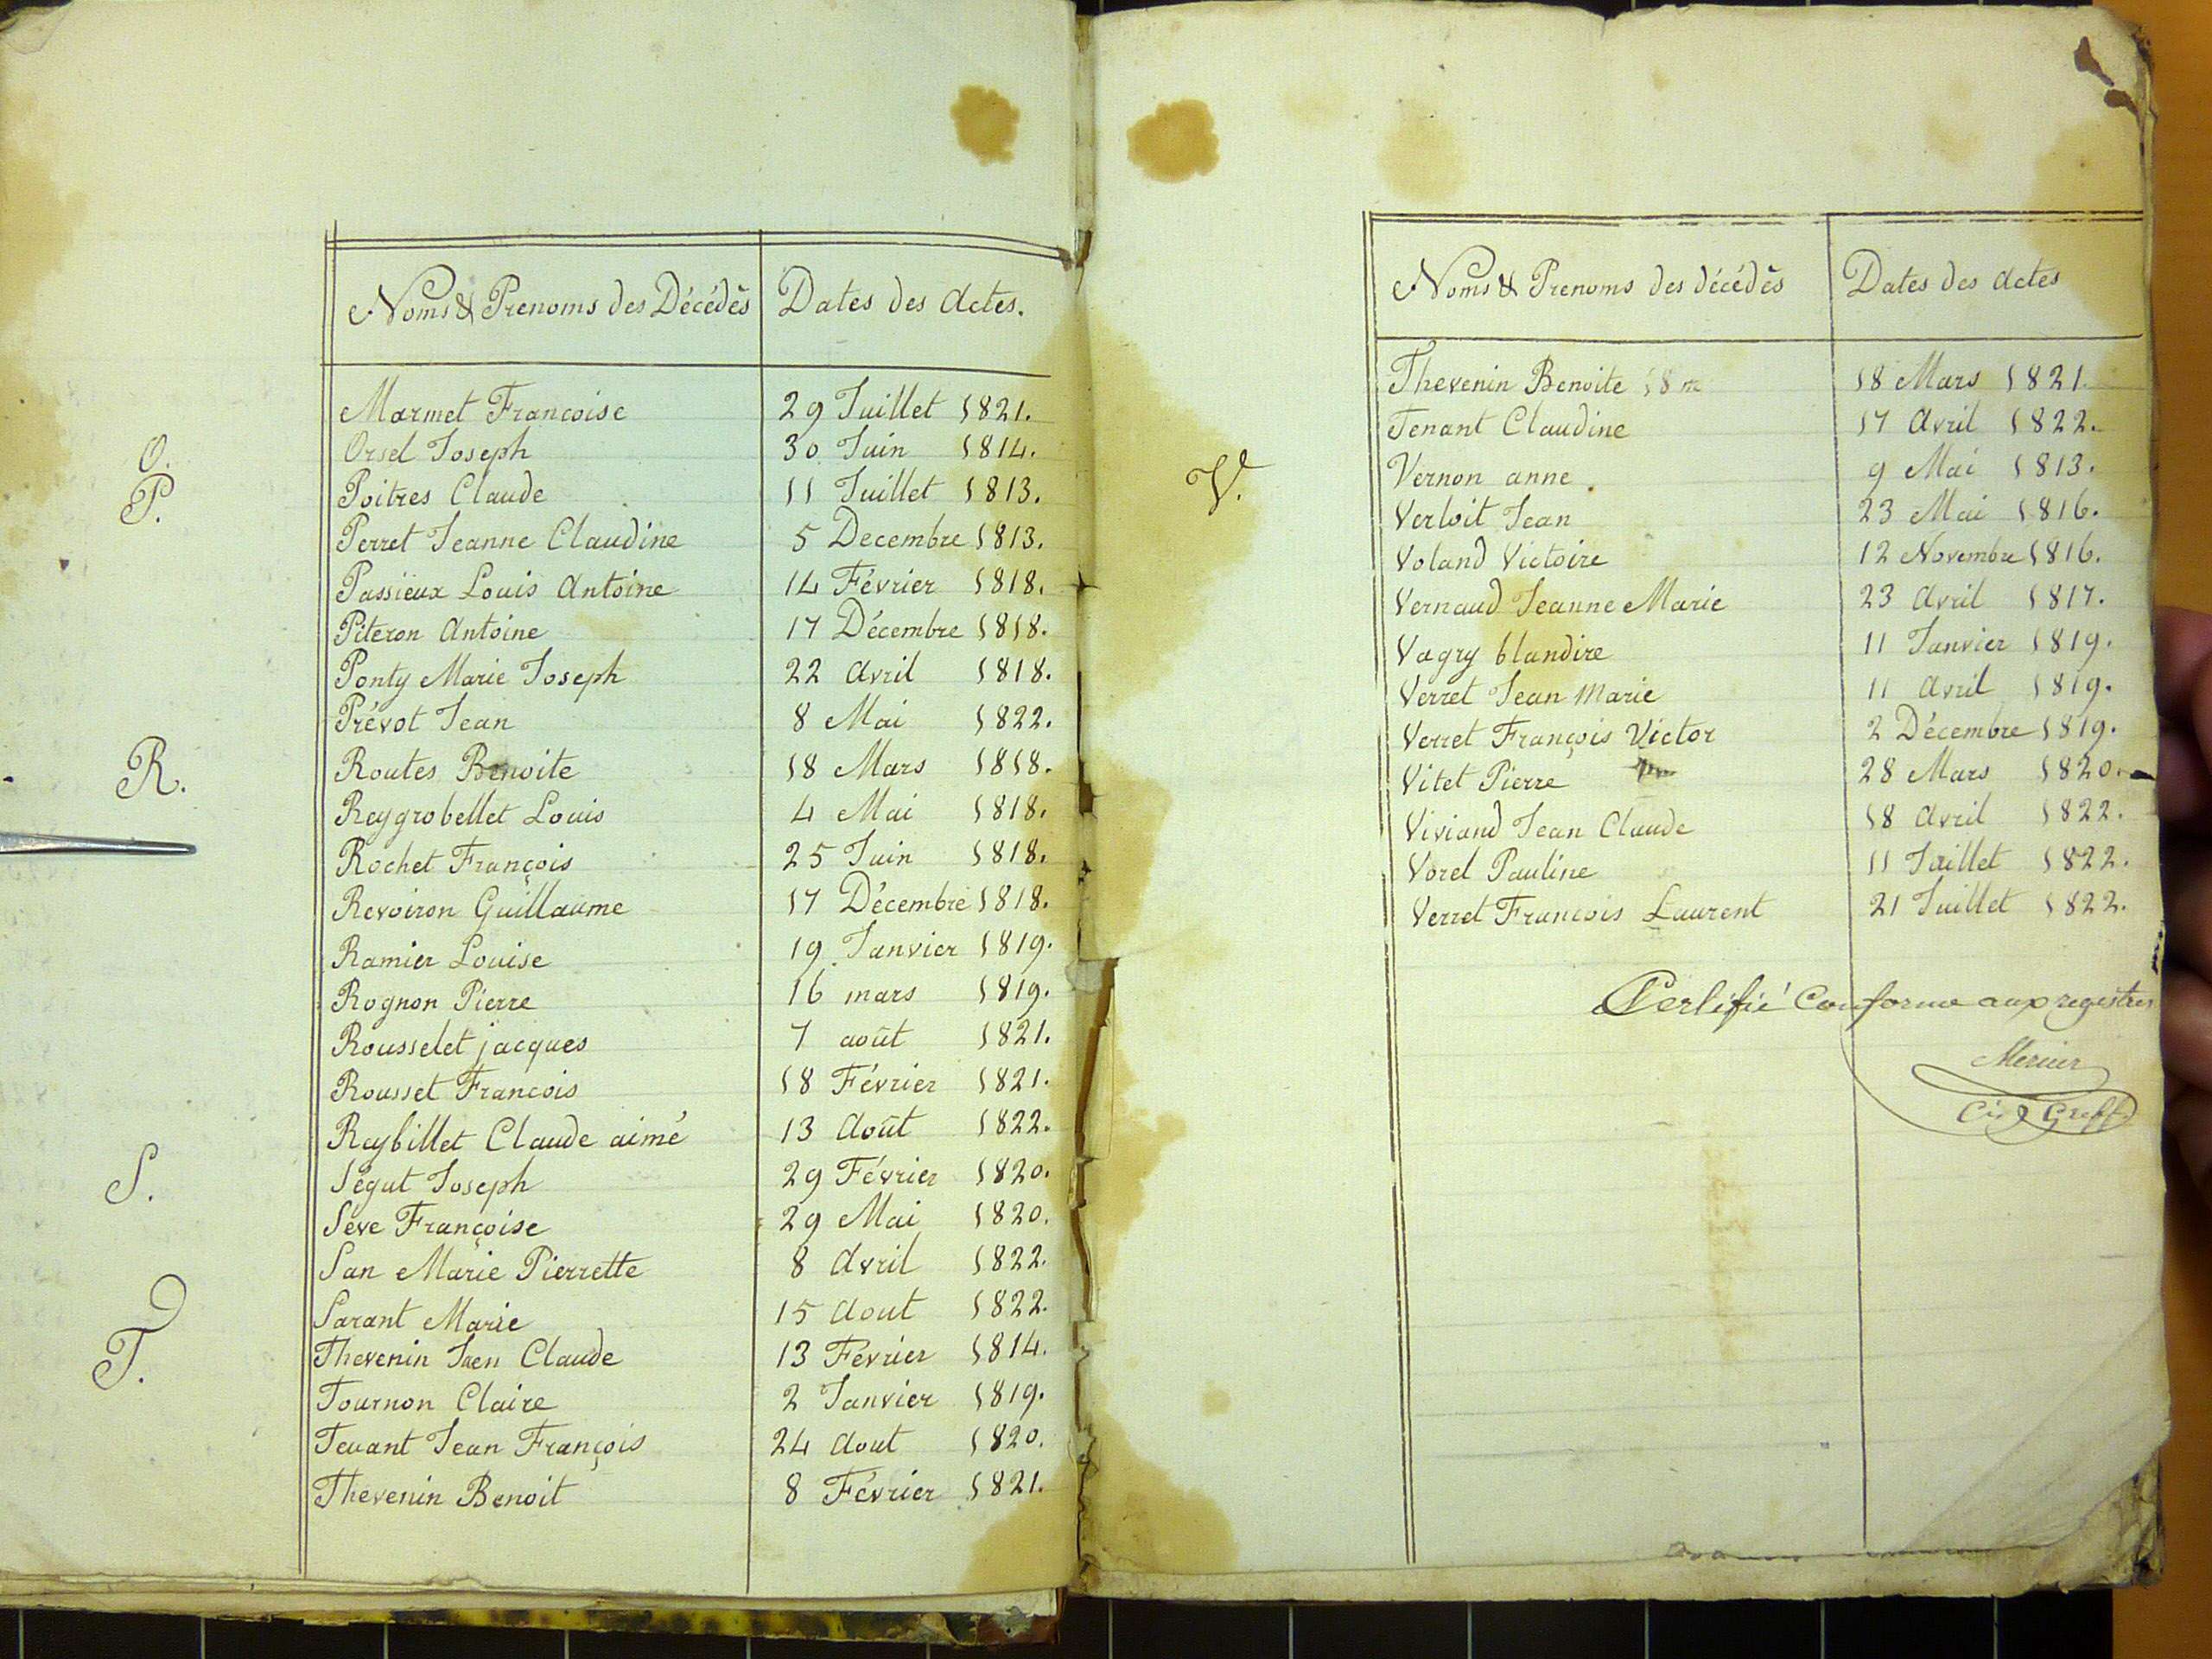 Noms & Prenoms des Décédés Dates des Actes.
Marmet Francoise 29 Juillet 1821.
O. Orsel Joseph 30 Juin 1814.
P. Poitres Claude 11 Juillet 1813.
Perret Jeanne Claudine 5 Decembre 1813.
Passieux Louis Antoine 14 Février 1818.
Piteron Antoine 17 Décembre 1818.
Ponty Marie Joseph 22 Avril 1818.
Prévot Jean 8 Mai 1822.
R. Routes Benoite 18 Mars 1818.
Reygrobellet Louis 4 Mai 1818.
Rochet François 25 Juin 1818.
Revoiron Guillaume 17 Décembre 1818.
Ramier Louise 19 Janvier 1819.
Rognon Pierre 16 mars 1819.
Rousselet jacques 7 août 1821.
Rousset Francois 18 Février 1821.
Reybillet Claude aimé 13 Août 1822.
S. Ségut Joseph 29 Février 1820.
Séve Françoise 29 Mai 1820.
San Marie Pierrette 8 Avril 1822.
Sarant Marie 15 Aout 1822.
T. Thevenin Jaen Claude 13 Fevrier 1814.
Tournon Claire 2 Janvier 1819.
Tenant Jean François 24 Aout 1820.
Thevenin Benoit 8 Février 1821.
Noms & Prenoms des décédés Dates des Actes
Thevenin Benoite 18 m 18 Mars 1821.
Tenant Claudine 17 Avril 1822.
V. Vernon anne. 9 Mai 1813.
Verloit Jean 23 Mai 1816.
Voland Victoire 12 Novembre 1816.
Vernaud Jeanne Marie 23 Avril 1817.
Vagry blandire 11 Janvier 1819.
Verret Jean Marie 11 Avril 1819.
Verret François Victor 2 Décembre 1819.
Vitet Pierre 28 Mars 1820.
Viviand Jean Claude 18 Avril 1822.
Vorel Pauline 11 Juillet 1822.
Verret Francois Laurent 21 Juillet 1822.
Certifié Conforme aux registres
Mercier
Greff